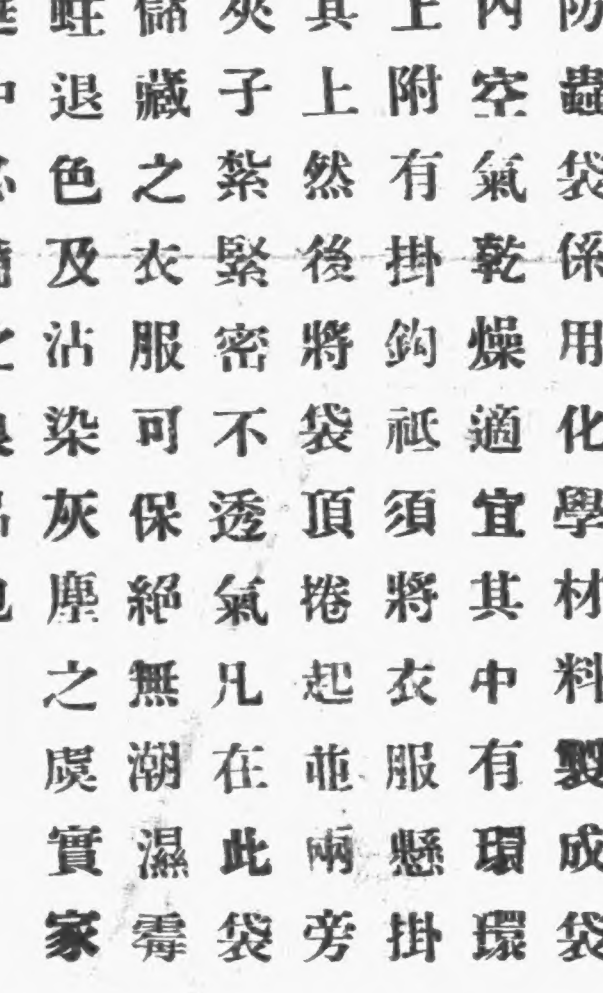 防蟲袋係用化學材料製成袋
內空氣乾燥適宜其中有環環
上附有掛鈎祗須將衣服懸掛
其上然後將袋頂捲起並兩旁
夾子紮緊密不透氣凡在此袋
儲藏之衣服可保絕無潮濕霉
蛀退色及沾染灰塵之虞實家